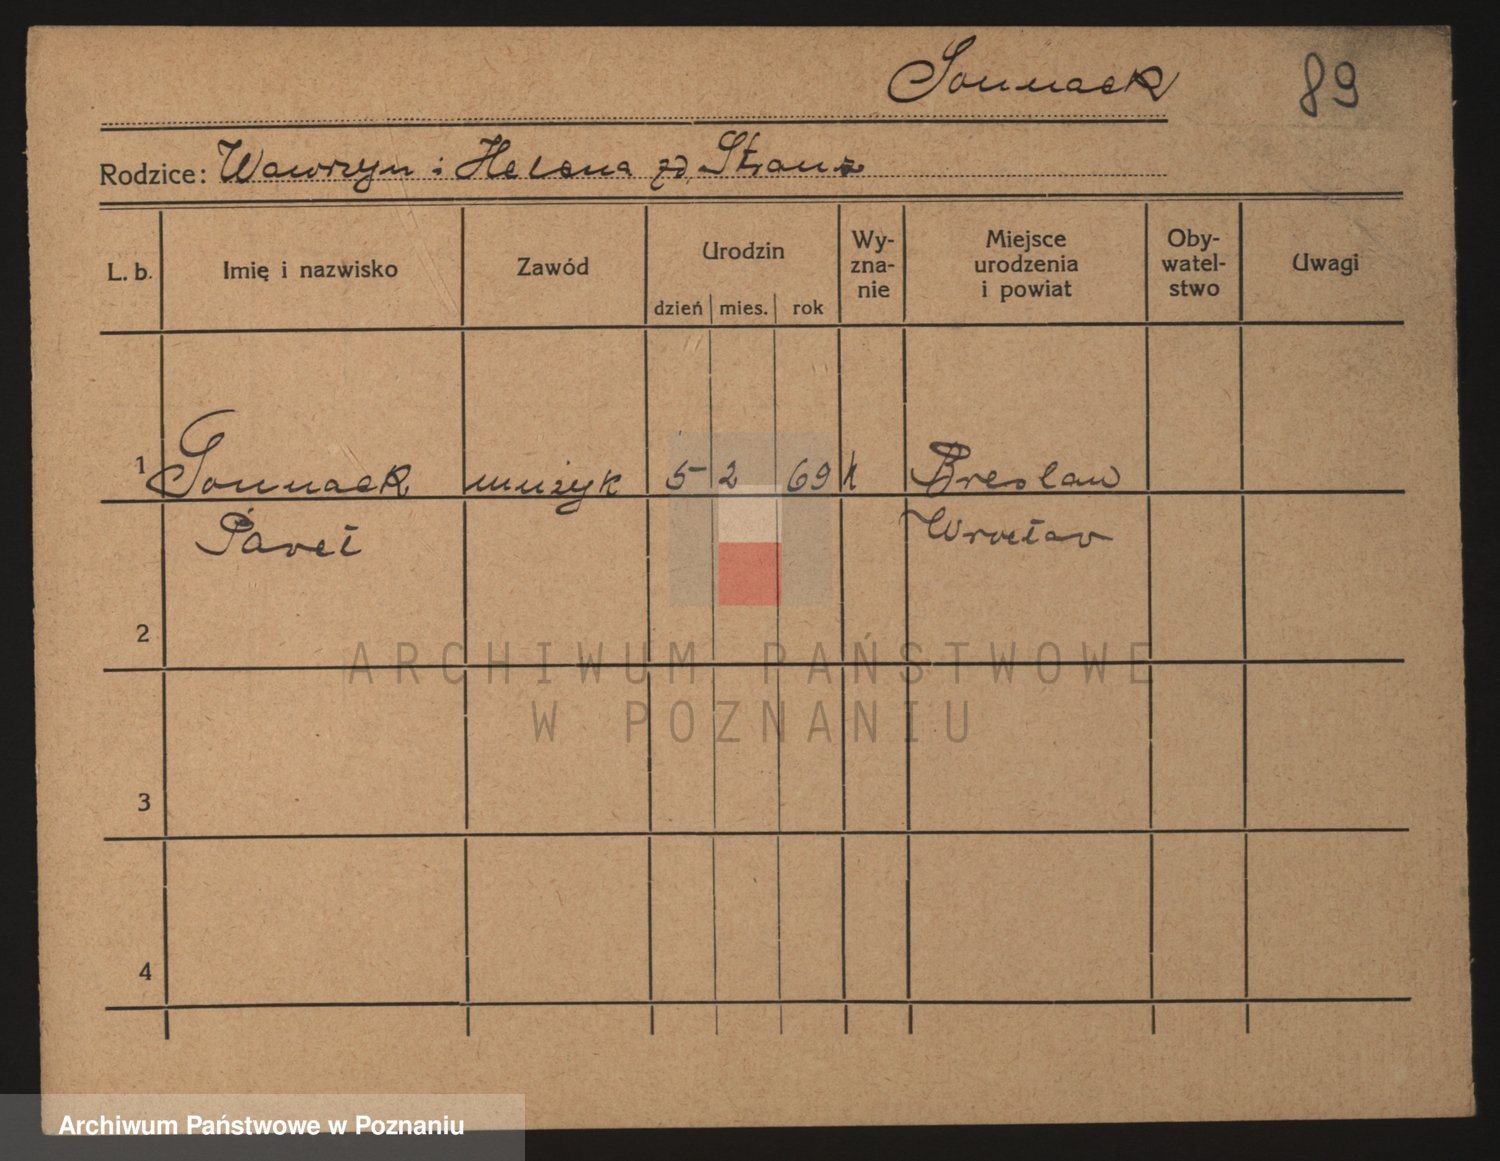 Sonnack
89
Rodzice: Wawrzyn i Helena zd. Stranz
L. b.
Imię i nazwisko
Zawód
Urodzin
dzień mies. rok
Wy-
zna-
nie
Miejsce
urodzenia
i powiat
Oby-
watel-
stwo
Uwagi
1 Sonnack muzyk 5 2 69 k Breslau
Paweł Wrocław
2
ARCHIWUM PAŃSTWOWE
W POZNANIU
3
4
Archiwum Państwowe w Poznaniu